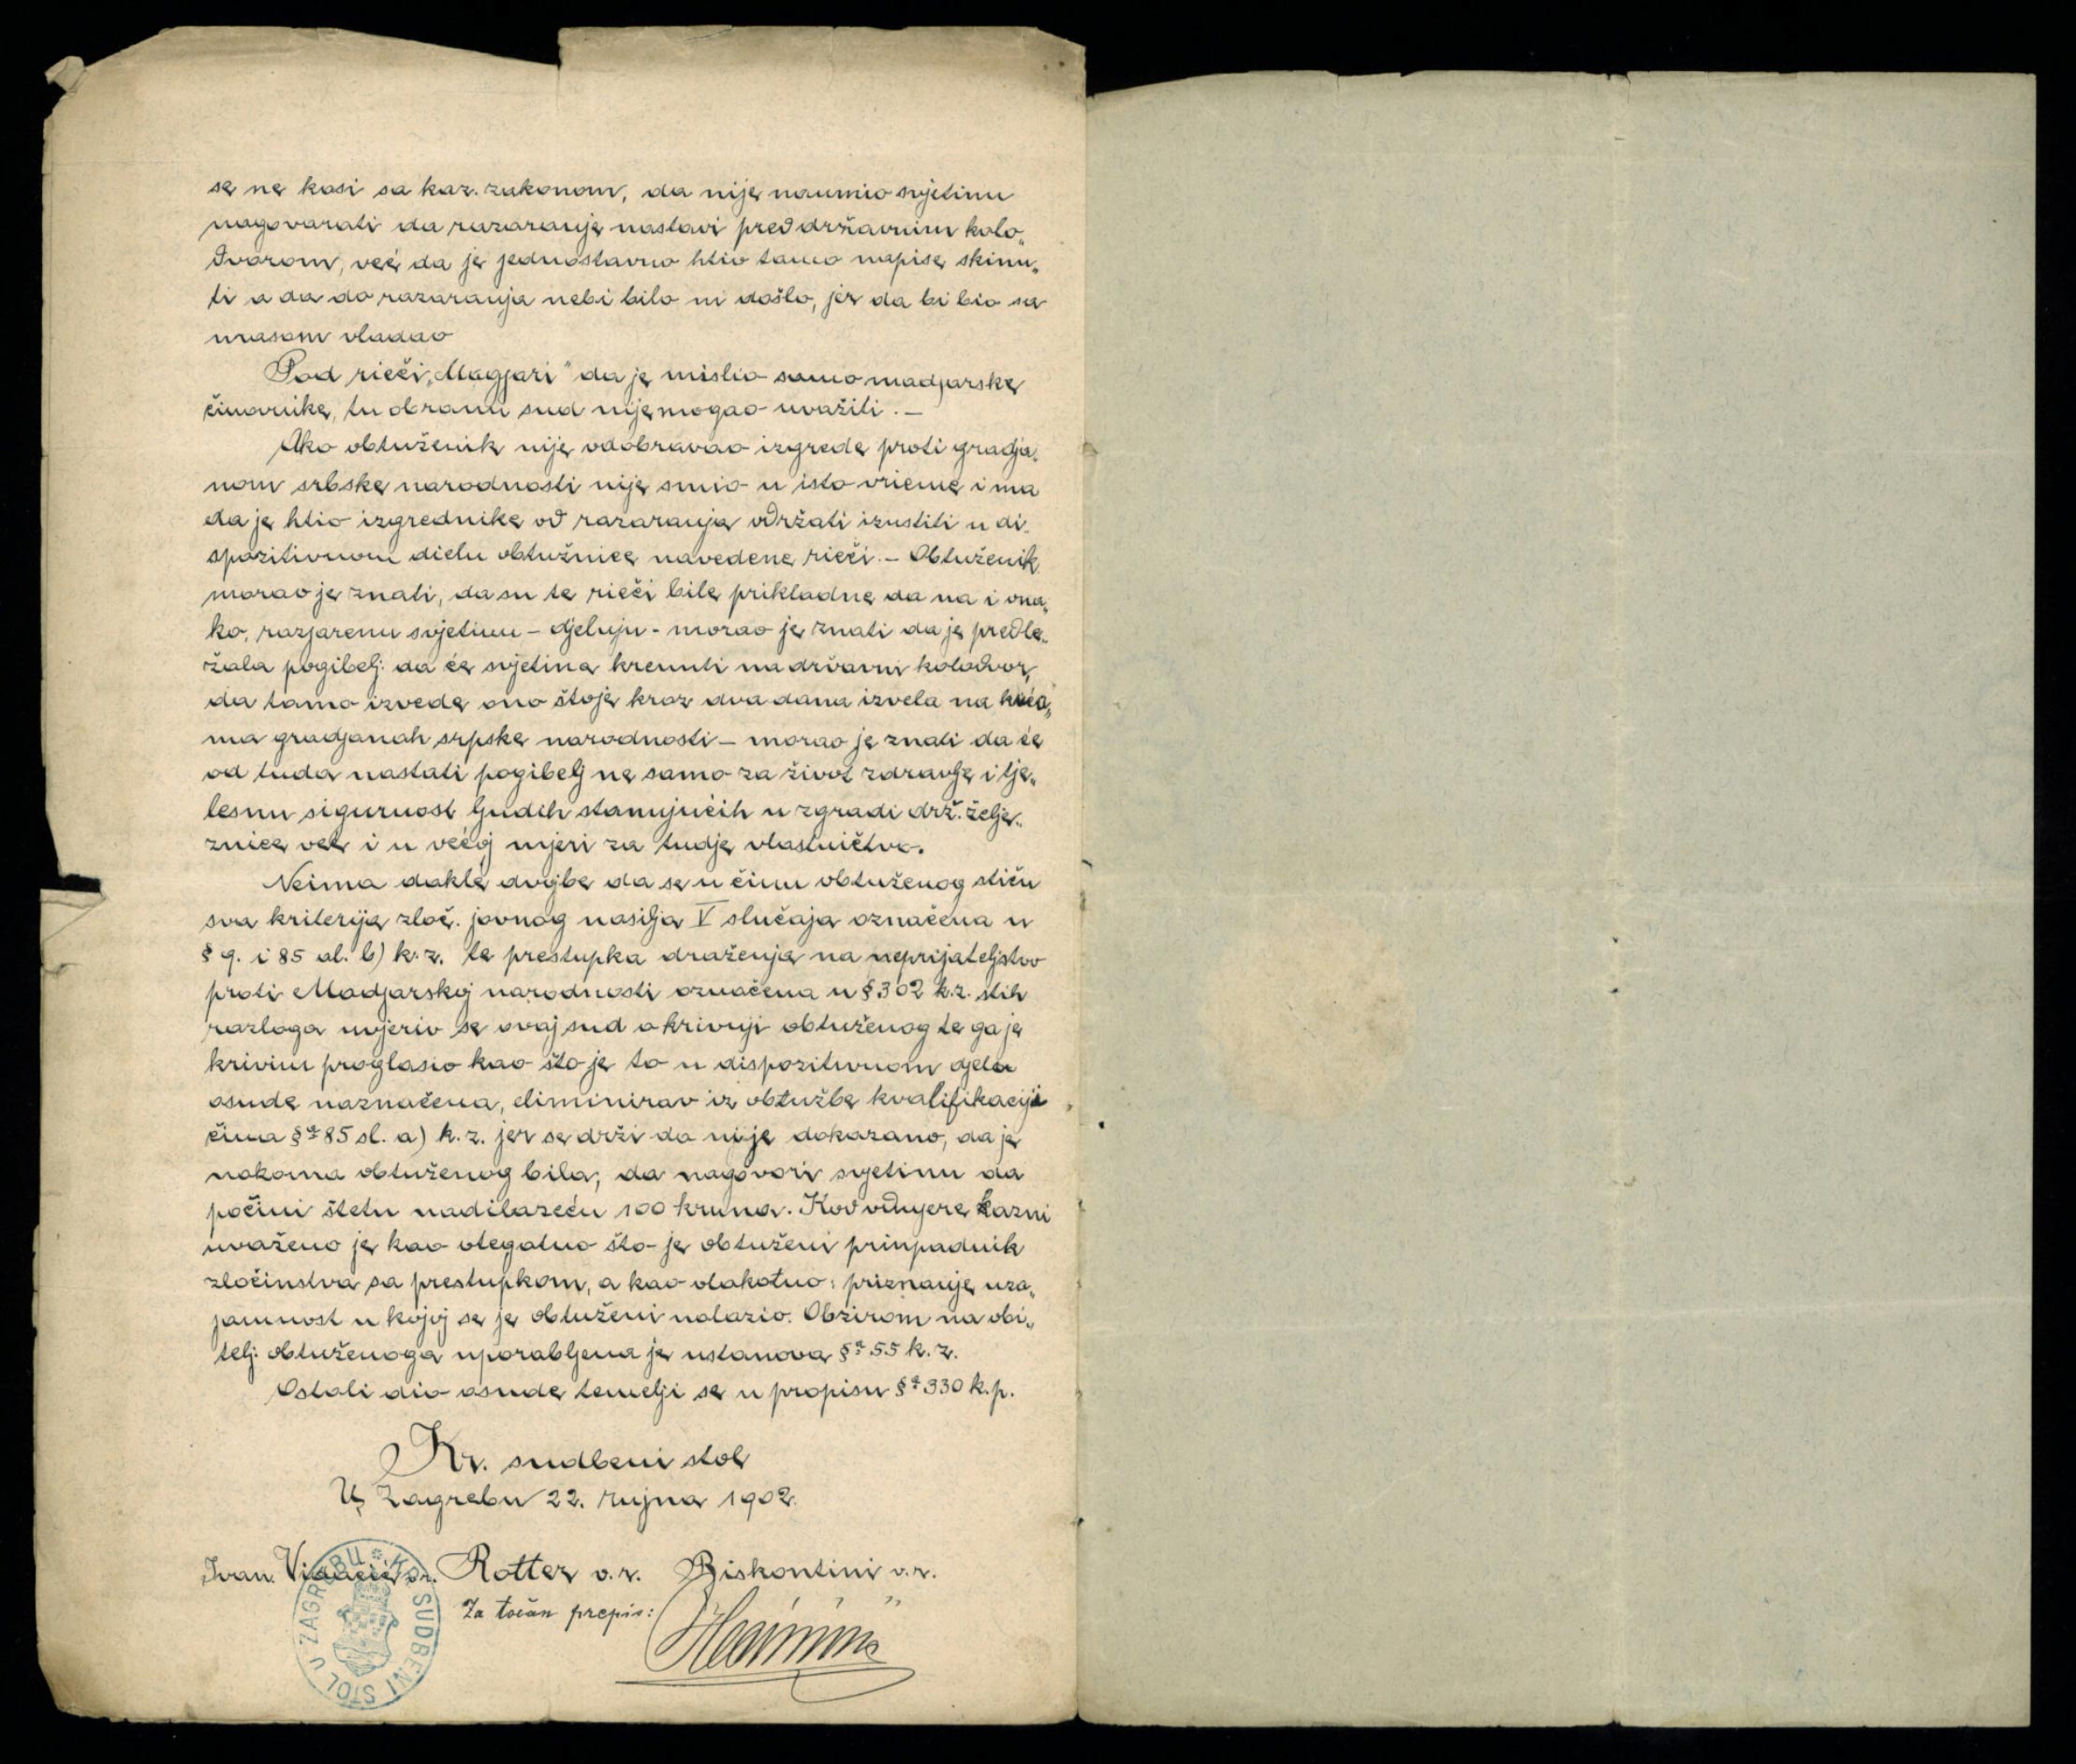 se ne kosi sa kaz. zakonom, da nije naumio svjetinu
nagovarati da razaranje nastavi pred državnim kolo„
dvorom, već da je jednostavno htio tamo napise skinu„
ti a da do razaranja nebi bilo ni došlo, jer da bi bio sa
masom vladao
Pod rieči „Magjari" da je mislio samo madjarske
činovnike, tu obranu sud nije mogao uvažiti. —
Ako obtuženik nije odobravao izgrede proti gradja„
nom srbske narodnosti nije smio u isto vrieme i ma
da je htio izgrednike od razaranja održati izustiti u di„
spozitivnom dielu obtužnice navedene rieči. — Obtuženik
morao je znati, da su te rieči bile prikladne da na i ona„
ko, razjarenu svjetinu — djeluju - morao je znati da je predle„
žala pogibelj: da će svjetina krenuti na državni kolodvor,
da tamo izvede ono što je kroz dva dana izvela na kuća„
ma gradjanah srpske narodnosti — morao je znati da će
od tuda nastati pogibelj ne samo za život zdravlje i tje„
lesnu sigurnost ljudih stanujućih u zgradi drž. želje„
znice već i u većoj mjeri za tudje vlastničtvo.
Neima dakle dvojbe da se u činu obtuženog stiču
sva kriterija zloč. javnog nasilja V slučaja označena u
§ 9. i 85 al. b) k. z. te prestupka draženja na neprijateljstvo
proti Madjarskoj narodnosti označena u § 302 k. z. stih
razloga uvjerio se ovaj sud o krivnji obtuženog te ga je
krivim proglasio kao što je to u dispozitivnom djelu
osude naznačena, eliminirav iz obtužbe kvalifikaciju
čina §ª 85 sl. a) k. z. jer se drži da nije dokazano, da je
nakana obtuženog bila, da nagovori svjetinu da
počini štetu nadilazeću 100 kruna. Kod odmjere kazni
uvaženo je kao otegotno što je obtuženi pripadnik
zločinstva sa prestupkom, a kao olakotno: priznanje uza„
jamnost u kojoj se je obtuženi nalazio. Obzirom na obi„
telj: obtuženoga uporabljena je ustanova §ª 55 k. z.
Ostali dio osude temelji se u propisu §ª 330 k. p.
Kr. sudbeni stol
U Zagrebu 22. rujna 1902.
Ivan v.r. Rotter v. r. Biskontini v. r.
Za točan prepis:
KR. SUDBENI STOL U ZAGREBU